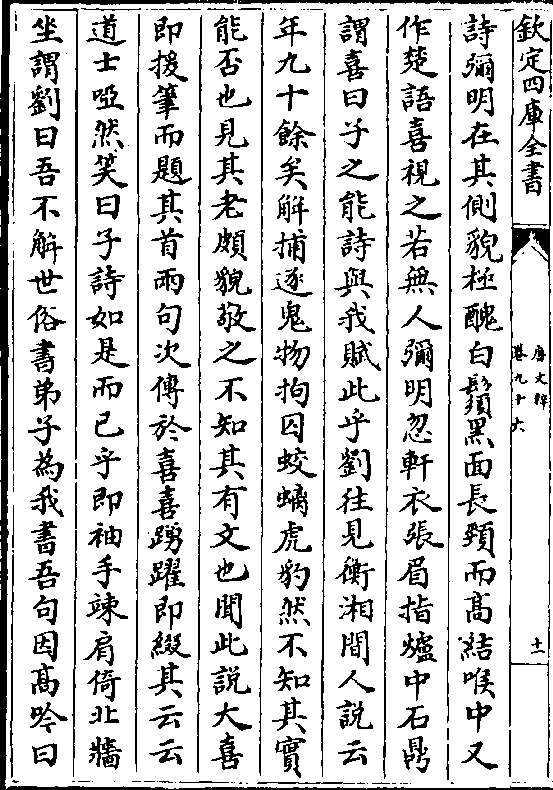 欽定四庫全書
唐文粹
卷九十六
十一
詩彌明在其側貌極醜白鬚黑面長頸而髙結喉中又
作楚語喜視之若無人彌明忽軒衣張眉指爐中石鼎
謂喜曰子之能詩與我賦此乎劉往見衡湘間人説云
年九十餘矣解捕逐鬼物拘囚蛟螭虎豹然不知其實
能否也見其老頗貌敬之不知其有文也聞此説大喜
即援筆而題其首兩句次傳於喜喜踴躍即綴其云云
道士啞然笑曰子詩如是而已乎即袖手竦肩倚北牆
坐謂劉曰吾不解世俗書弟子為我書吾句因髙吟曰